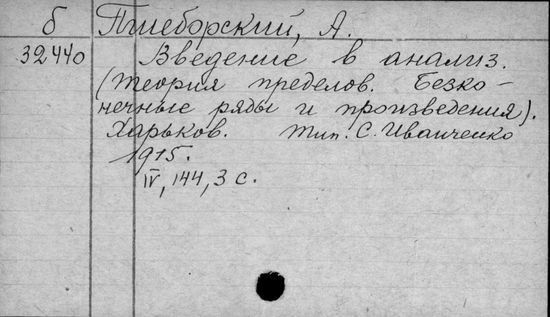 б Пшеборский, А.
32440 Введение в анализ.
(Теория пределов. Безко-
нечные ряды и произведения).
Харьков. Тип. С. Иванченко
1915.
IV, 144, 3 с.